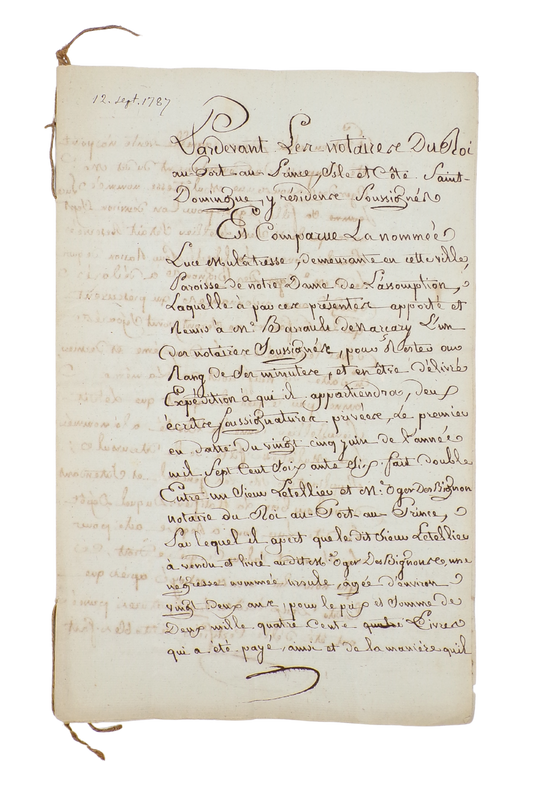 12. Sept. 1787
Pardevant Les notaires Du Roi
au Port-au Prince, Isle et Côte Saint-
Domingue, y résidence Soussignés
Est Comparue La nommée
Luce mulâtresse, demeurante en cette ville,
Paroisse de notre Dame de L'assomption,
Laquelle a par ces présentes apporté et
Remis à Me. Barrault de Narçay L'un
des notaires Soussignés, pour Rester au
Rang de Ses minutes, et en être délivré
Expédition à qui il appartiendra, deux
écrits soussignatures privées, Le premier
en datte du vingt cinq juin de l'année
mil Sept Cent Soixante Six fait double
Entre un Sieur Letellier et Me. Oger Des Bignon
notaire du Roi au Port-au Prince,
Par lequel il apert que le dit Sieur Letellier
à vendu et livré audit Me. Oger Des Bignons, une
négresse nommée ursule, agée d'environ
vingt deux ans, pour le prix et Somme de
Deux mille quatre Cents Livres
qui a été payé, ainsi et de la manière qu'il